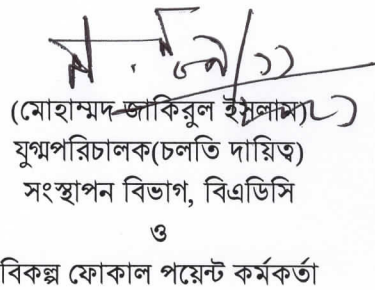 (মোহাম্মদ জাকিরুল ইসলাম)
যুগ্মপরিচালক(চলতি দায়িত্ব)
সংস্থাপন বিভাগ, বিএডিসি
ও
বিকল্প ফোকাল পয়েন্ট কর্মকর্তা